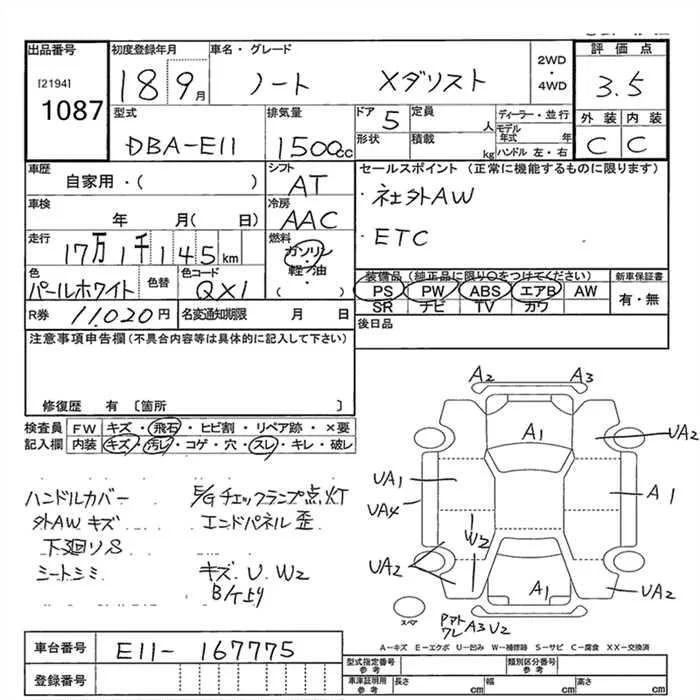 出品番号 初度登録年月 車名・グレード 2WD・4WD 評価点
[2194] 1087 18 9月 ノート Xダリスト 3.5
型式 排気量 ドア 5 定員 人 ディーラー・並行 外装 内装
DBA-E11 1500cc 形状 積載 kg モデル年式 年 ハンドル 左・右 C C
車歴 シフト セールスポイント (正常に機能するものに限ります)
自家用・( ) AT ・社外AW
車検 年 月( 日) 冷房 AAC ・ETC
走行 17万1千145km 燃料 ガソリン・軽油・( )
装備品 (純正品に限り○をつけてください) 新車保証書
色 パールホワイト 色替 色コード QX1 PS PW ABS エアB AW 有・無
SR ナビ TV カワ
R券 11,020円 名変通知期限 月 日 後日品
注意事項申告欄 (不具合内容等は具体的に記入して下さい)
修復歴 有 〔箇所 〕
検査員記入欄 FW キズ・飛石・ヒビ割・リペア跡・×要
内装 キズ・汚レ・コゲ・穴・スレ・キレ・破レ
ハンドルカバー E/Gチェックランプ点灯
外AWキズ エンドパネル歪
下廻りS
シートシミ キズ.U.W2
B/ケ上り
A2 A3
A1 UA2
UA1 A1
UA4
W2
UA2 A1 UA2
スペア ワレA3U2
A−キズ E−エクボ U−凹み W−補修跡 S−サビ C−腐食 XX−交換済
車台番号 E11-167775
型式指定番号 参考 類別区分番号 参考
登録番号 車庫証明用 参考 長さ cm 幅 cm 高さ cm